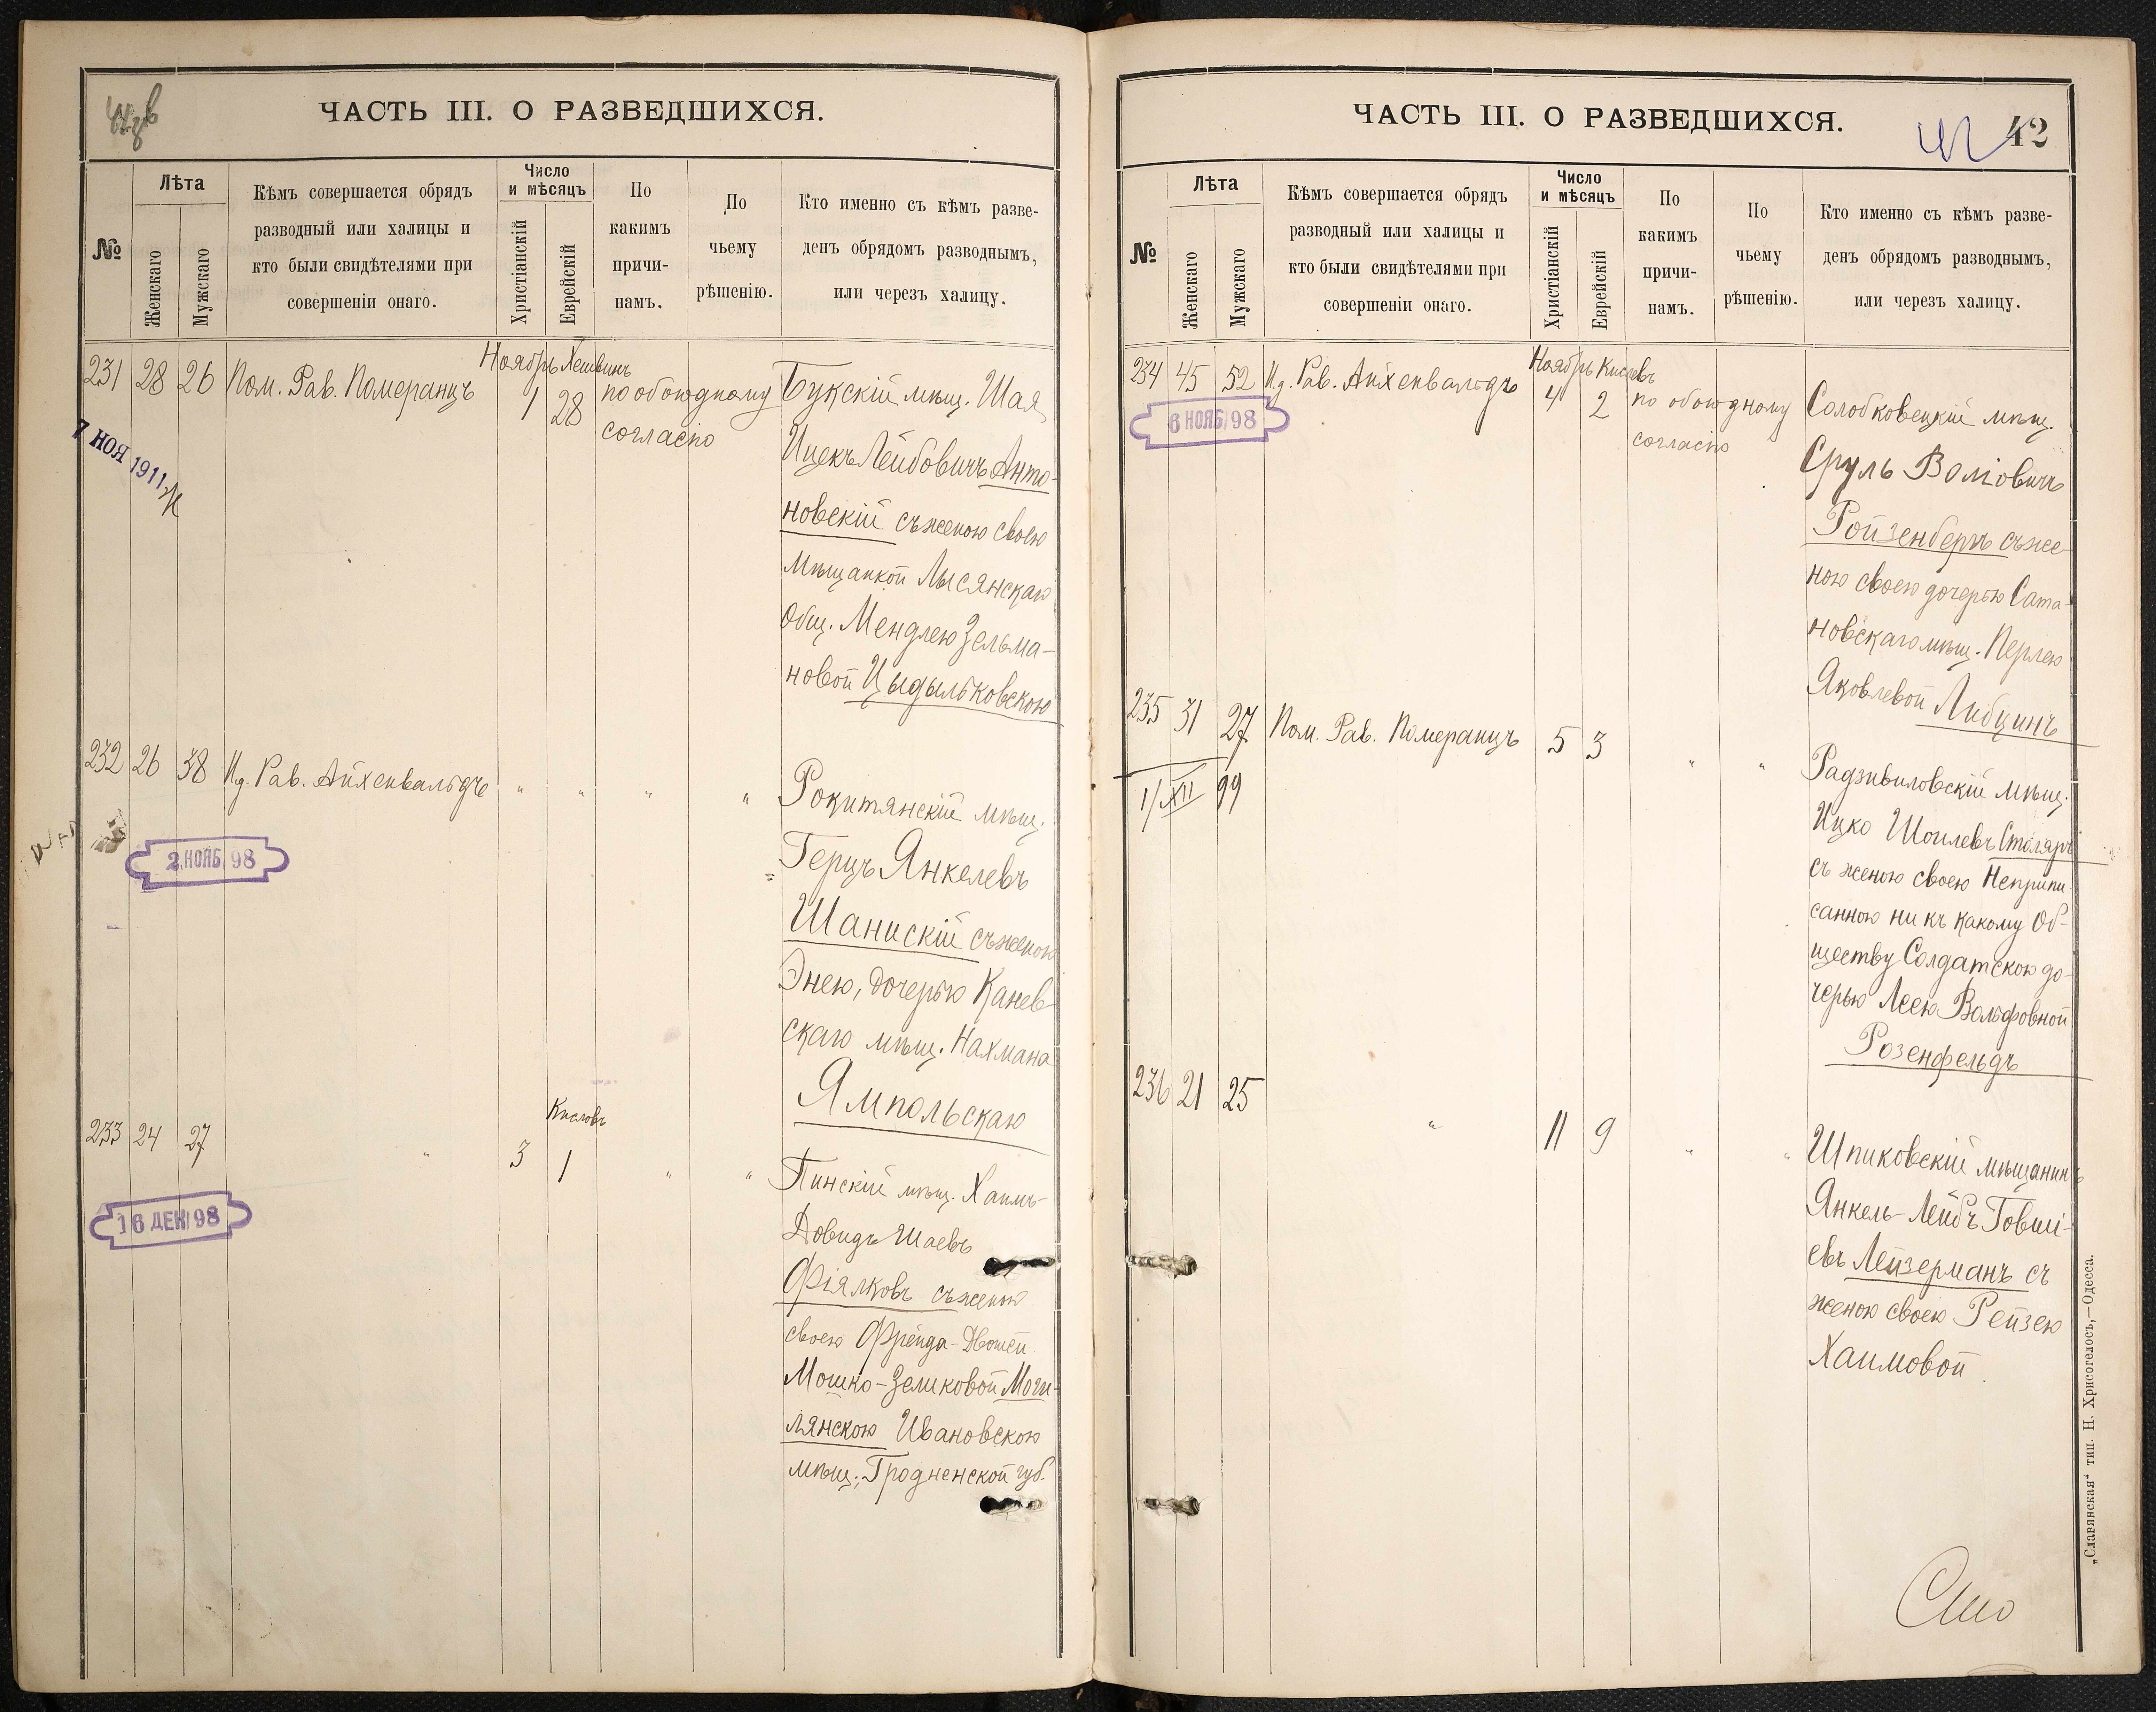 ЧАСТЬ III. О РАЗВЕДШИХСЯ.
№
Лѣта
Женскаго
Мужскаго
Кѣмъ совершается обрядъ
разводный или халицы и
кто были свидѣтелями при
совершеніи онаго.
Число
и мѣсяцъ
Христіанскій
Еврейскій
По
какимъ
причи-
намъ.
По
чьему
рѣшенію.
Кто именно съ кѣмъ разве-
денъ обрядомъ разводнымъ,
или черезъ халицу.
Ноябрь Хешвинъ
231 28 26 Пом. Рав. Померанцъ 1 28 по обоюдному
согласію
7 НОЯ 1911
Букскій мѣщ. Шая
Ицекъ Лейбовичъ Анто-
новскій съ женою своею
мѣщанкой Лысянскаго
Общ. Мендлею Зельма-
новой Цыдыльковскою
232 26 38 И.д. Рав. Айхенвальдъ " " " "
2 НОЯБ 98
Рокитянскій мѣщ.
Герцъ Янкелевъ
Шанискій съ женою
Энею, дочерью Канев-
скаго мѣщ. Нахмана
Ямпольскаго
Кислевъ
233 24 27 " 3 1 " "
16 ДЕК 98
Пинскій мѣщ. Хаимъ-
Довидъ Шаевъ
Фіялковъ съ женою
своею Фрейда-Двошей
Мошко-Зеликовой Моги-
лянскою Ивановскою
мѣщ. Гродненской губ.
ЧАСТЬ III. О РАЗВЕДШИХСЯ.
42 42
№
Лѣта
Женскаго
Мужскаго
Кѣмъ совершается обрядъ
разводный или халицы и
кто были свидѣтелями при
совершеніи онаго.
Число
и мѣсяцъ
Христіанскій
Еврейскій
По
какимъ
причи-
намъ.
По
чьему
рѣшенію.
Кто именно съ кѣмъ разве-
денъ обрядомъ разводнымъ,
или черезъ халицу.
Ноябрь Кислевъ
234 45 52 И.д. Рав. Айхенвальдъ 4 2 по обоюдному
согласію
6 НОЯБ 98
Солобковецкій мѣщ.
Сруль Волiовичъ
Ройзенбергъ съ же-
ною своею дочерью Сата-
новскаго мѣщ. Перлею
Яковлевой Либцинъ
235 31 27 Пом. Рав. Померанцъ 5 3 " "
1/XII 99
Радзивиловскій мѣщ.
Ицко Шоилевъ Столяръ
съ женою своею Неприпи-
санною ни къ какому Об-
ществу Солдатскою до-
черью Леею Вольфовной
Розенфельдъ
236 21 25 " 11 9 " "
Шпиковскій мѣщанинъ
Янкель-Лейбъ Говши-
евъ Лейзерманъ съ
женою своею Рейзею
Хаимовой.
„Славянская“ тип. Н. Хрисогелосъ,—Одесса.